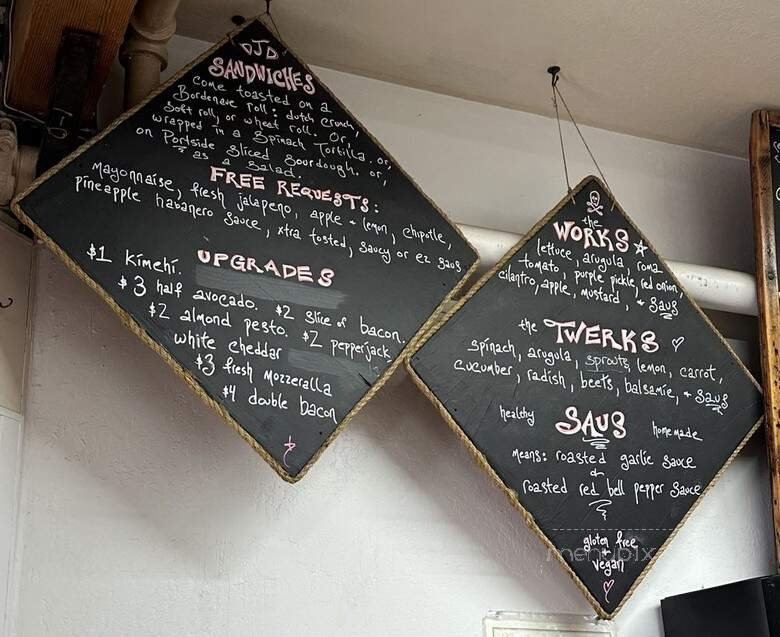 DJD
SANDWICHES
come toasted on a
Bordenave roll: dutch crunch,
soft roll, or wheat roll. Or,
wrapped in a Spinach Tortilla. or,
on Portside Sliced Sourdough. or,
as a Salad.
FREE REQUESTS:
Mayonnaise, fresh jalapeno, apple + lemon, chipotle,
pineapple habanero sauce, xtra tosted, saucy or ez saus
UPGRADES
$1 kimchi.
$3 half avocado. $2 slice of bacon.
$2 almond pesto. $2 pepperjack
white cheddar
$3 fresh mozzeralla
$4 double bacon
the
WORKS
lettuce, arugula, roma
tomato, purple pickle, red onion,
cilantro, apple, mustard, + saus
the TWERKS
spinach, arugula, sprouts, lemon, carrot,
cucumber, radish, beets, balsamic, + saus
healthy SAUS homemade
means: roasted garlic sauce
&
roasted red bell pepper sauce
gluten free
+
vegan
menupix